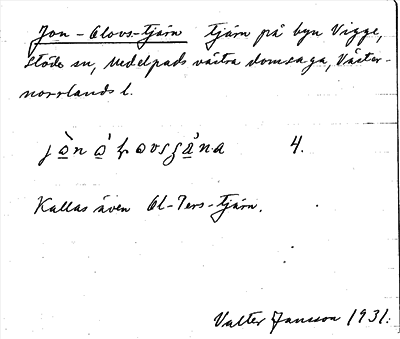 Jon-Olovs-tjärn tjärn på byn Vigge,
Stöde sn, Medelpads västra domsaga, Väster-
norrlands l.
4.
Kallas även Ol-Pers-tjärn.
Valter Jansson 1931.